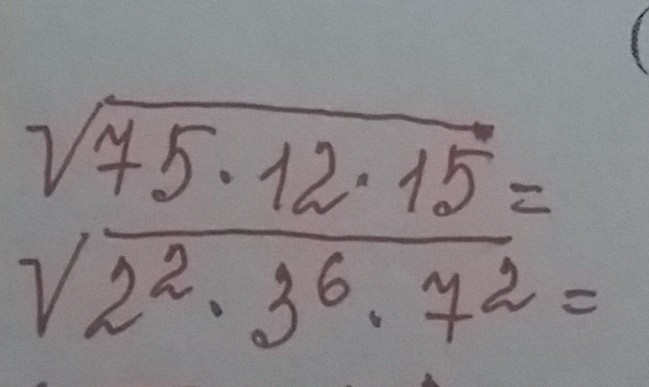 √75·12·15=
√2²·3⁶·7²=